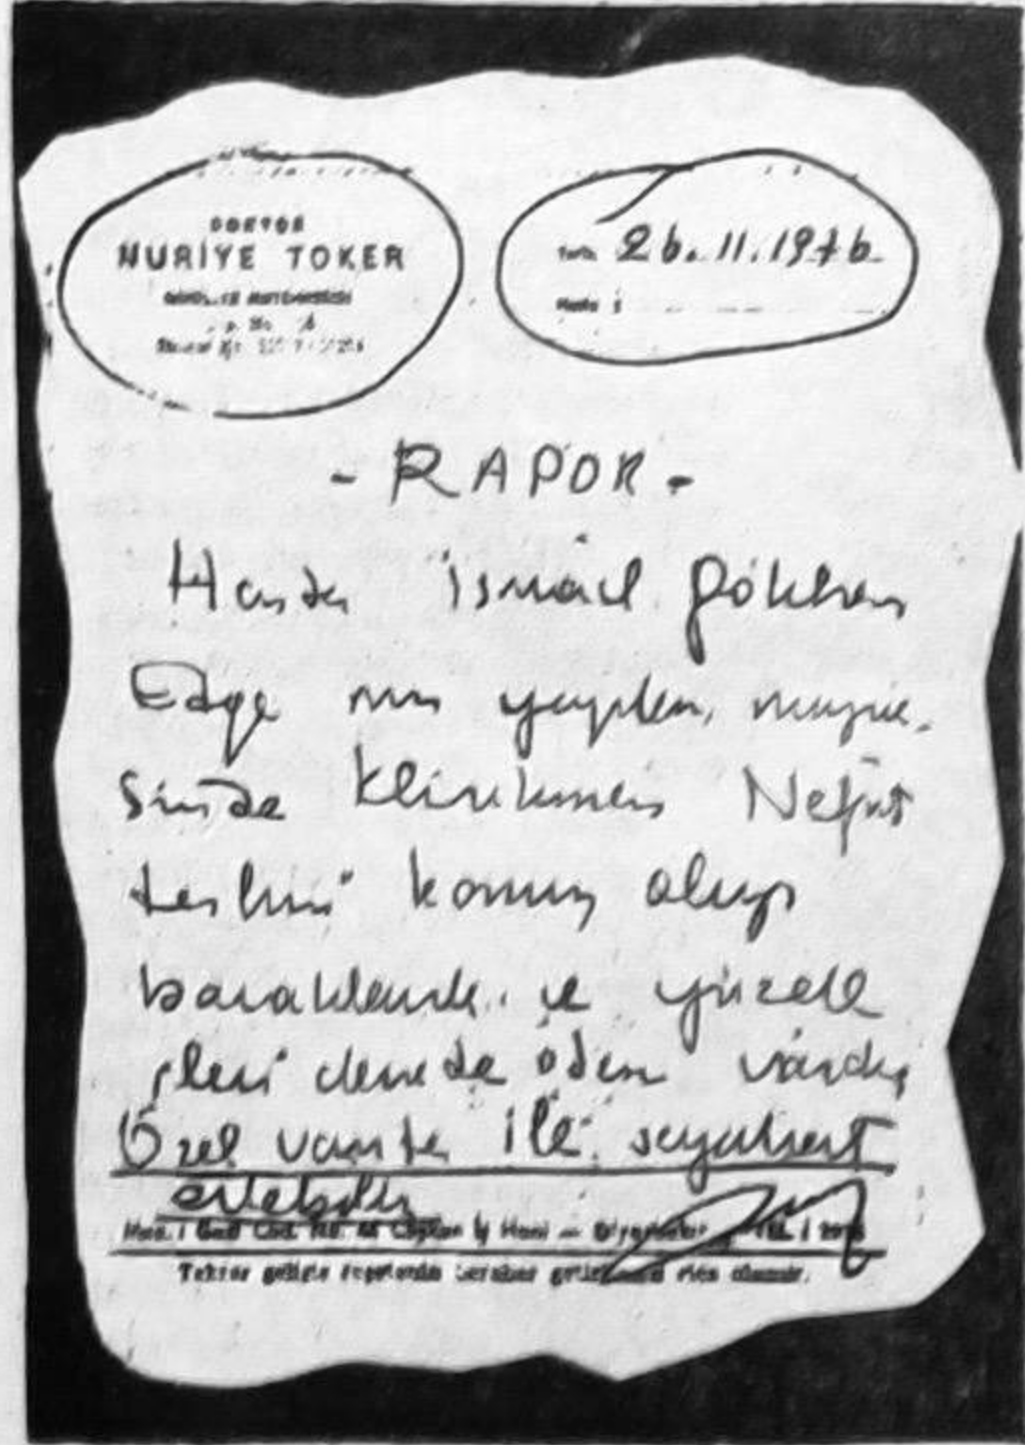 DOKTOR
NURİYE TOKER
Tarih 26.11.1976
- RAPOR -
Hasta İsmail Gökhan
Edge nin yapılan muyane
sinde klinikmen Nefrit
teshisi konmuş olup
bacaklarında ve yüzde
ileri derecede ödem vardır
Özel vasıta ile seyahat
edebilir
Tekrar gelişte reçetenin beraber getirilmesi rica olunur.